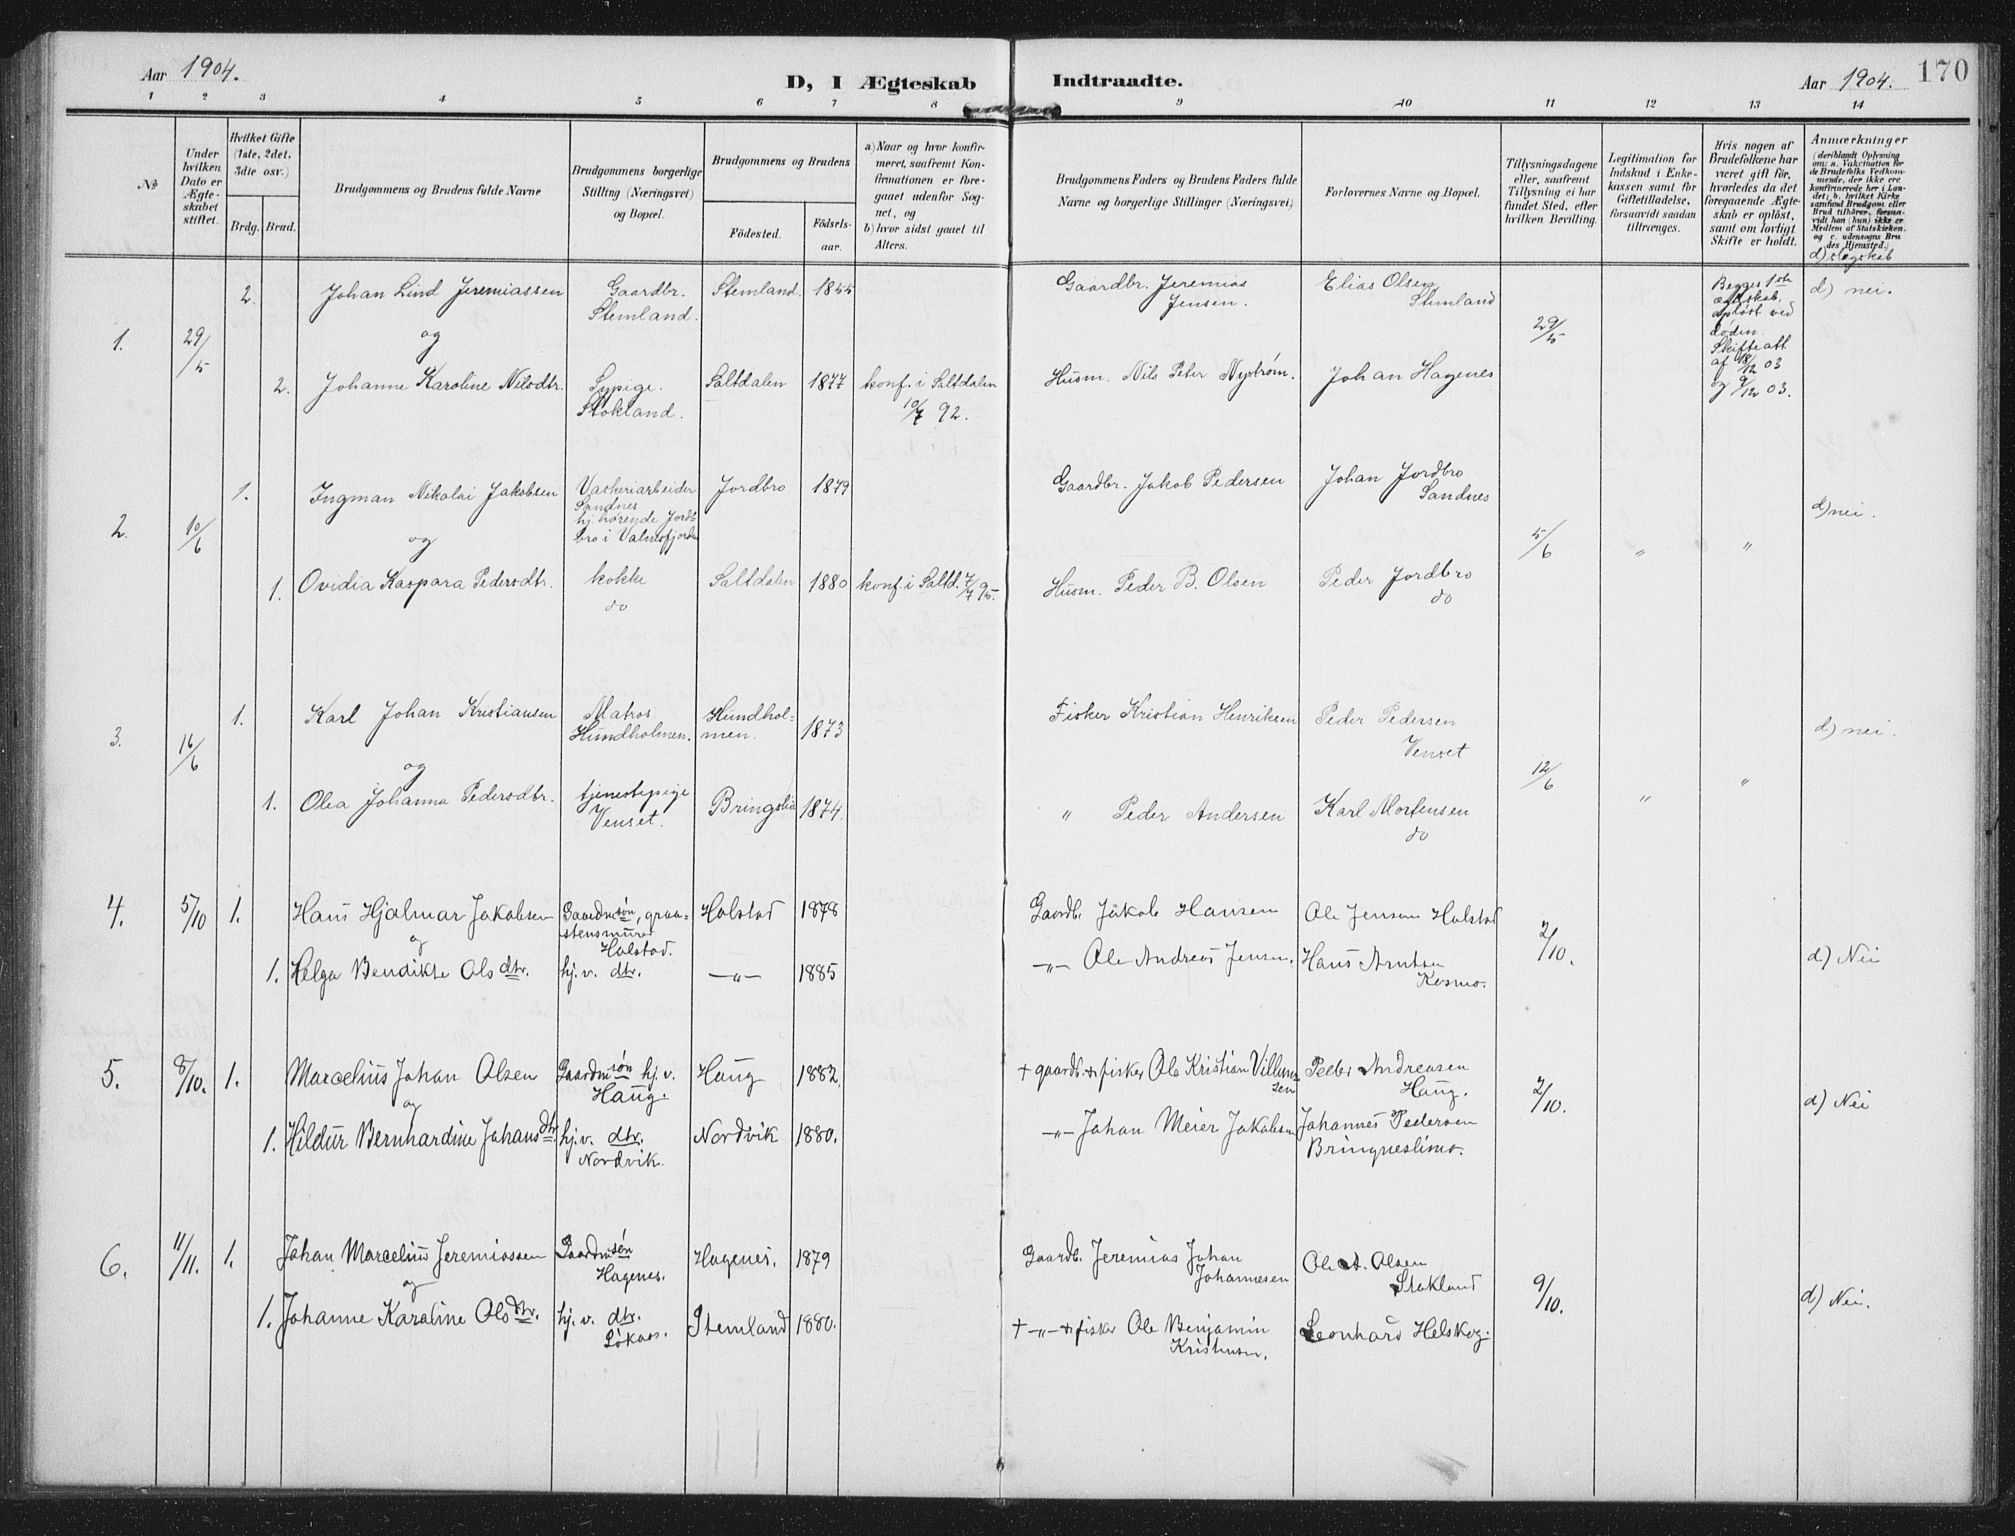 Aar 1904.
D, I Ægteskab Indtraadte.
Aar 1904.
170
1 2 3 4 5 6 7 8 9 10 11 12 13 14
No
Under hvilken Dato er Ægteskabet stiftet.
Hvilket Gifte (1ste, 2det, 3die osv.)
Brdg. Brud.
Brudgommens og Brudens fulde Navne
Brudgommens borgerlige Stilling (Næringsvei) og Bopæl.
Brudgommens og Brudens
Födested.
Födselsaar.
a) Naar og hvor konfirmeret, saafremt Konfirmationen er foregaaet udenfor Sognet, og
b) hvor sidst gaaet til Alters.
Brudgommens Faders og Brudens Faders fulde Navne og borgerlige Stillinger (Næringsvei)
Forlovernes Navne og Bopæl.
Tillysningsdagene eller, saafremt Tillysning ei har fundet Sted, efter hvilken Bevilling.
Legitimation for Indskud i Enkekassen samt for Giftetilladelse, forsaavidt saadan tiltrænges.
Hvis nogen af Brudefolkene har været gift för, hvorledes da det foregaaende Ægteskab er oplöst, samt om lovligt Skifte er holdt.
Anmærkninger
(deriblandt Oplysning om: a. Vakcination for de Brudefolks Vedkommende, der ikke ere konfirmerede her i Landet; b. hvilket Kirkesamfund Brudgom eller Brud tilhörer, forsaavidt han (hun) ikke er Medlem af Statskirken, og c. udensogns Brudes Hjemsted.)
d) slegskab
1. 29/5 2. Johan Lind Jeremiassen Gaardbr. Stemland. Stemland. 1855 Gaardbr. Jeremias Jensen. Elias Olsen Stemland 29/5 Begges 1ste ægteskab opløst ved døden. Skifteatt. af 18/12 03 og 9/12 03. d) nei.
og
2. Johanne Karoline Nilsdtr. Sypige. Stokland. Saltdalen 1877 konf. i Saltdalen 10/7 92. Husm. Nils Peter Nystrøm. Johan Hagenes
2. 10/6 1. Ingman Nikolai Jakobsen Vaskeriarbeider Sandnes hj. hørende Jordbro i Valnesfjorden Jordbro 1879 Gaardbr. Jakob Pedersen Johan Jordbro Sandnes 5/6 " " d) nei.
og
1. Ovidia Kaspara Pedersdtr. kokke do Saltdalen 1880 konf. i Saltd. 7/7 95. Husm. Peder B. Olsen Peder Jordbro do
3. 16/6 1. Karl Johan Kristiansen Matros Hundholmen. Hundholmen. 1873 Fisker Kristian Henriksen Peder Pedersen Venset 12/6 " " d) nei.
og
1. Olea Johanna Pedersdtr. tjenestepige Venset. Bringslid 1874. " Peder Andersen Karl Mortensen do
4. 5/10 1. Hans Hjalmar Jakobsen Gaardmsøn, graastensmurer Holstad. Holstad 1878 Gaardb. Jakob Hansen Ole Jensen Holstad 2/10. d) Nei
og
1. Helga Bendikte Olsdtr. hj. v. dtr. —"— 1885 —"— Ole Andreas Jensen. Hans Arntsen Kosmo.
5. 8/10. 1. Marcelius Johan Olsen Gaardmsøn hj. v. Haug. Haug 1882. + gaardb. & fisker Ole Kristian Villumsen Peder Andreasen Haug. 2/10. d) Nei
og
1. Hildur Bernhardine Johansdtr. hj. v. dtr. Nordvik. Nordvik 1880. —"— Johan Meier Jakobsen Johannes Pedersen Bringneslimo.
6. 11/11. 1. Johan Marcelius Jeremiassen Gaardmsøn Hagenes. Hagenes. 1879 Gaardb. Jeremias Johan Johannesen Ole A. Olsen Stokland 9/10. d) Nei.
og
1. Johanne Karoline Olsdtr. hj. v. dtr. Løkaas. Stemland 1880. + —"— & fisker Ole Benjamin Kristensen. Leonhard Helskog.